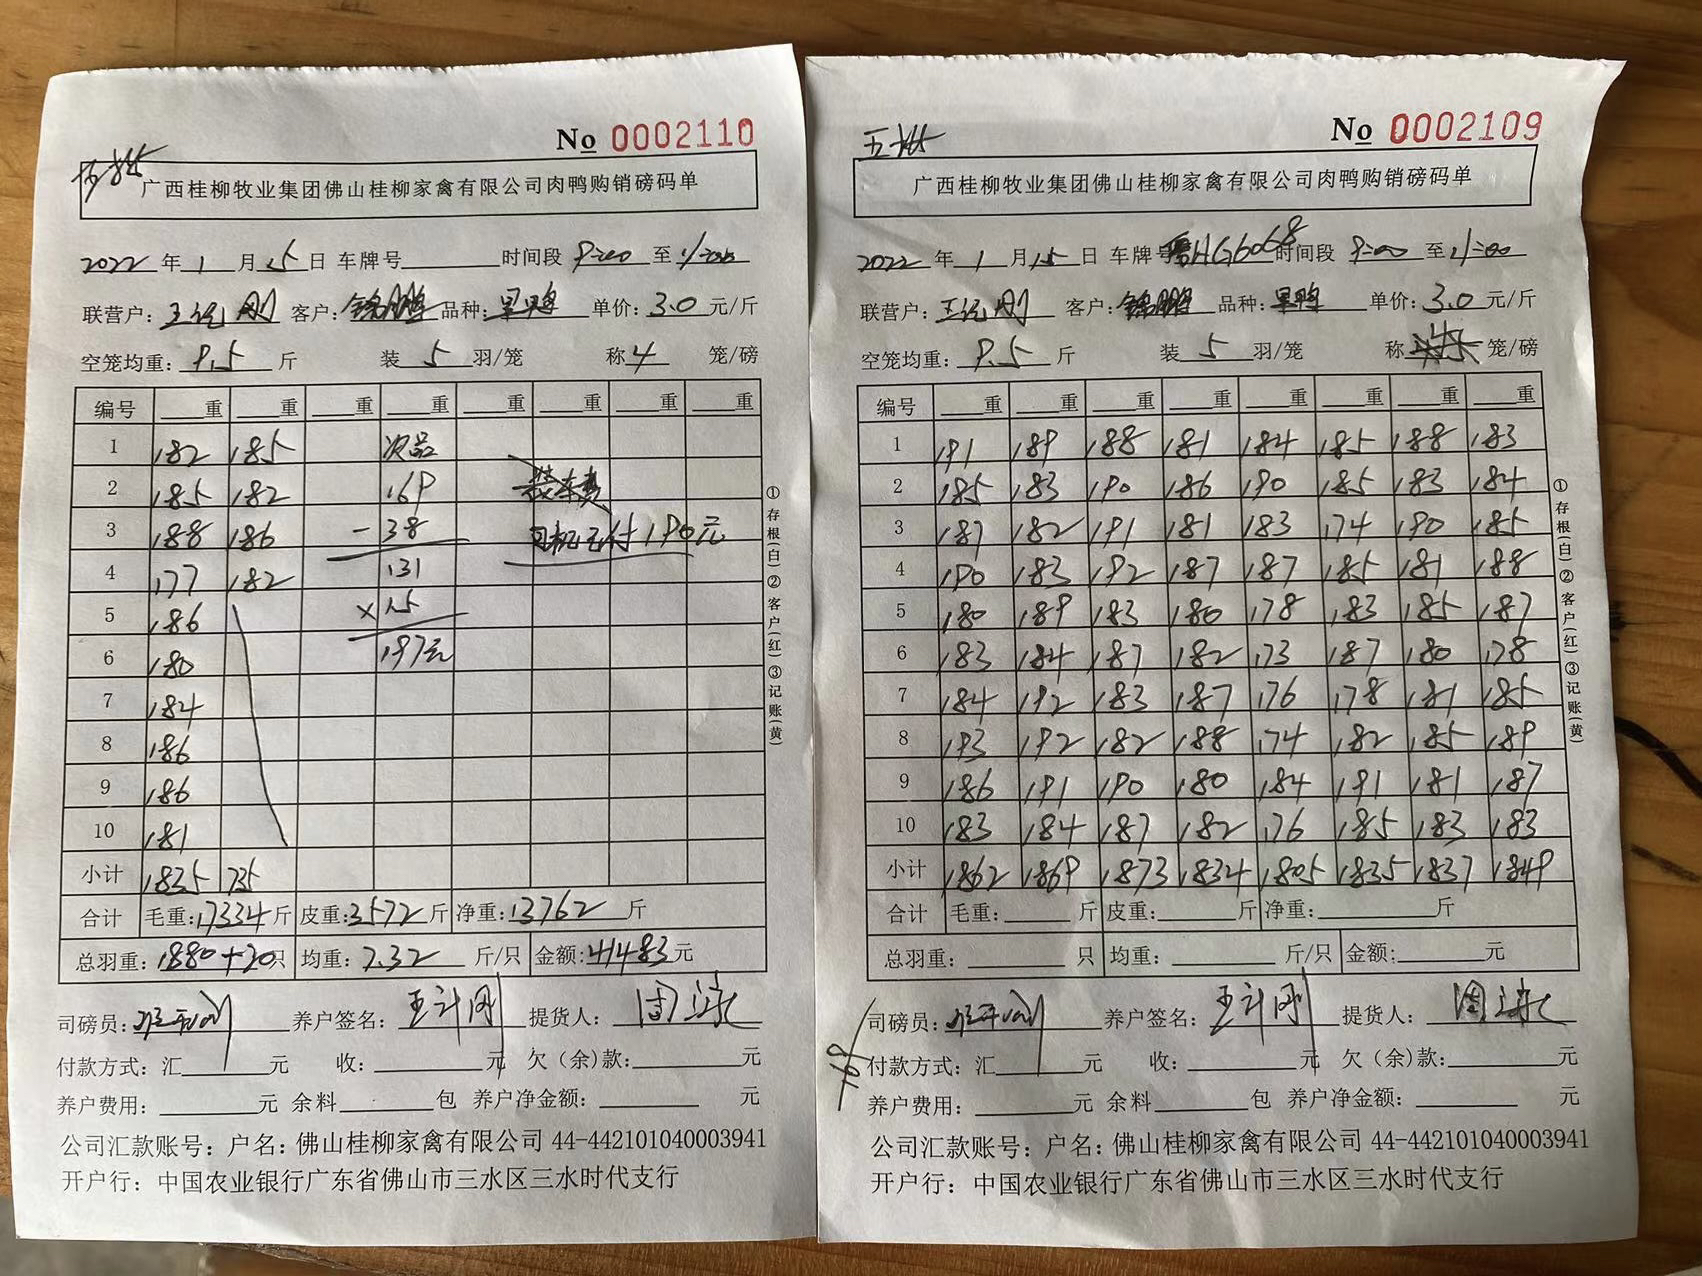 No 0002110
广西桂柳牧业集团佛山桂柳家禽有限公司肉鸭购销磅码单
2022年1月15日 车牌号 时间段 9:00 至 11:00
联营户: 客户: 锦鹏 品种: 单价: 3.0 元/斤
空笼均重: 9.5 斤 装 5 羽/笼 称 4 笼/磅
编号 重 重 重 重 重 重 重 重
1 182 185 次品
2 185 182 169 装车费
3 188 186 -38 司机已付190元
4 177 182 131
5 186 ×1.5
6 180 197元
7 184
8 186
9 186
10 181
小计 1835 735
合计 毛重: 17334 斤 皮重: 3572 斤 净重: 13762 斤
总羽重: 1880+20 只 均重: 7.32 斤/只 金额: 41483 元
司磅员: 养户签名: 提货人:
付款方式: 汇 元 收: 元 欠(余)款: 元
养户费用: 元 余料 包 养户净金额: 元
公司汇款账号: 户名: 佛山桂柳家禽有限公司 44-442101040003941
开户行: 中国农业银行广东省佛山市三水区三水时代支行
①存根(白)②客户(红)③记账(黄)
No 0002109
广西桂柳牧业集团佛山桂柳家禽有限公司肉鸭购销磅码单
2022年1月15日 车牌号 HG6068 时间段 9:00 至 11:00
联营户: 客户: 锦鹏 品种: 单价: 3.0 元/斤
空笼均重: 9.5 斤 装 5 羽/笼 称 笼/磅
编号 重 重 重 重 重 重 重 重
1 191 189 188 181 184 185 188 183
2 185 183 190 186 190 185 183 184
3 187 182 191 181 183 174 190 185
4 190 183 192 187 187 185 181 188
5 180 189 183 180 178 183 185 187
6 183 184 187 182 173 187 180 178
7 184 192 183 187 176 178 181 185
8 193 192 182 188 174 182 185 189
9 186 191 190 180 184 191 181 187
10 183 184 187 182 176 185 183 183
小计 1862 1869 1873 1834 1805 1835 1837 1849
合计 毛重: 斤 皮重: 斤 净重: 斤
总羽重: 只 均重: 斤/只 金额: 元
司磅员: 养户签名: 提货人:
付款方式: 汇 元 收: 元 欠(余)款: 元
169
养户费用: 元 余料 包 养户净金额: 元
公司汇款账号: 户名: 佛山桂柳家禽有限公司 44-442101040003941
开户行: 中国农业银行广东省佛山市三水区三水时代支行
①存根(白)②客户(红)③记账(黄)